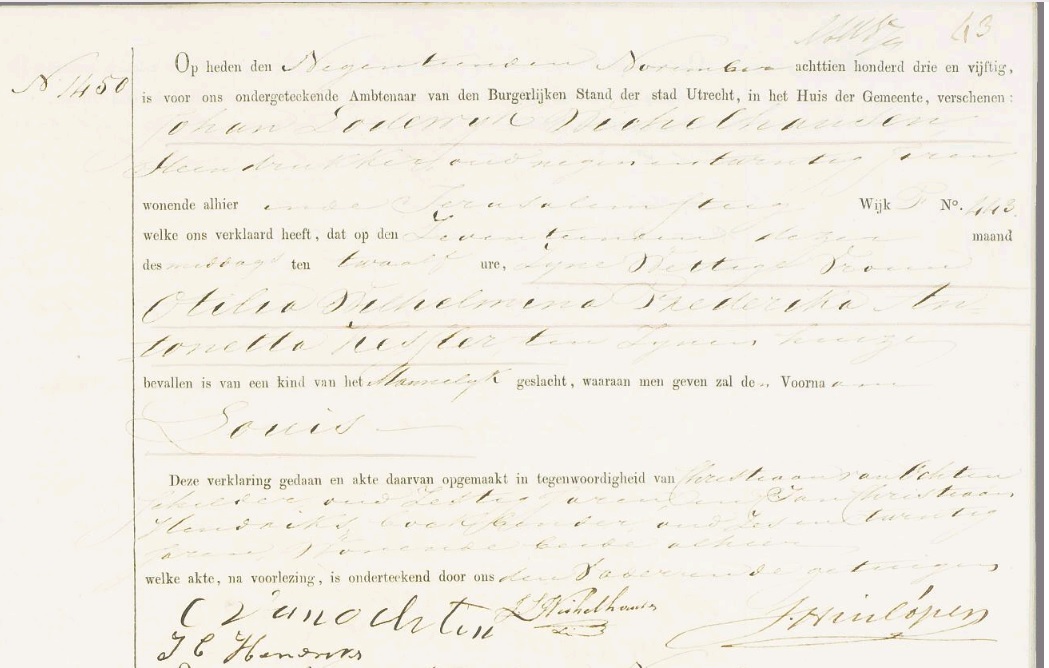 43
No 1450
Op heden den Negentienden November achttien honderd drie en vijftig,
is voor ons ondergeteekende Ambtenaar van den Burgerlijken Stand der stad Utrecht, in het Huis der Gemeente, verschenen:
Johan Lodewyk Wichelhausen
Steendrukker, oud negenentwintig jaren
wonende alhier inde Jerusalemsteeg Wijk F No. 443.
welke ons verklaard heeft, dat op den Zeventienden dezer maand
des middags ten twaalf ure, Zyne Wettige Vrouw
Otilia Wilhelmina Frederika An-
tonetta Kessler ten Zynen huize
bevallen is van een kind van het Mannelyk geslacht, waaraan men geven zal den Voornaam
Louis
Deze verklaring gedaan en akte daarvan opgemaakt in tegenwoordigheid van Christiaan van Ochten
schilder oud Zestig jaren en Jan Christiaan
Hendriks, boekbinder, oud Zesentwintig
jaren Wonende beide alhier
welke akte, na voorlezing, is onderteekend door ons den Vader en de getuigen
C Van Ochten J L Wichelhausen J. Hinlópen
J C Hendriks